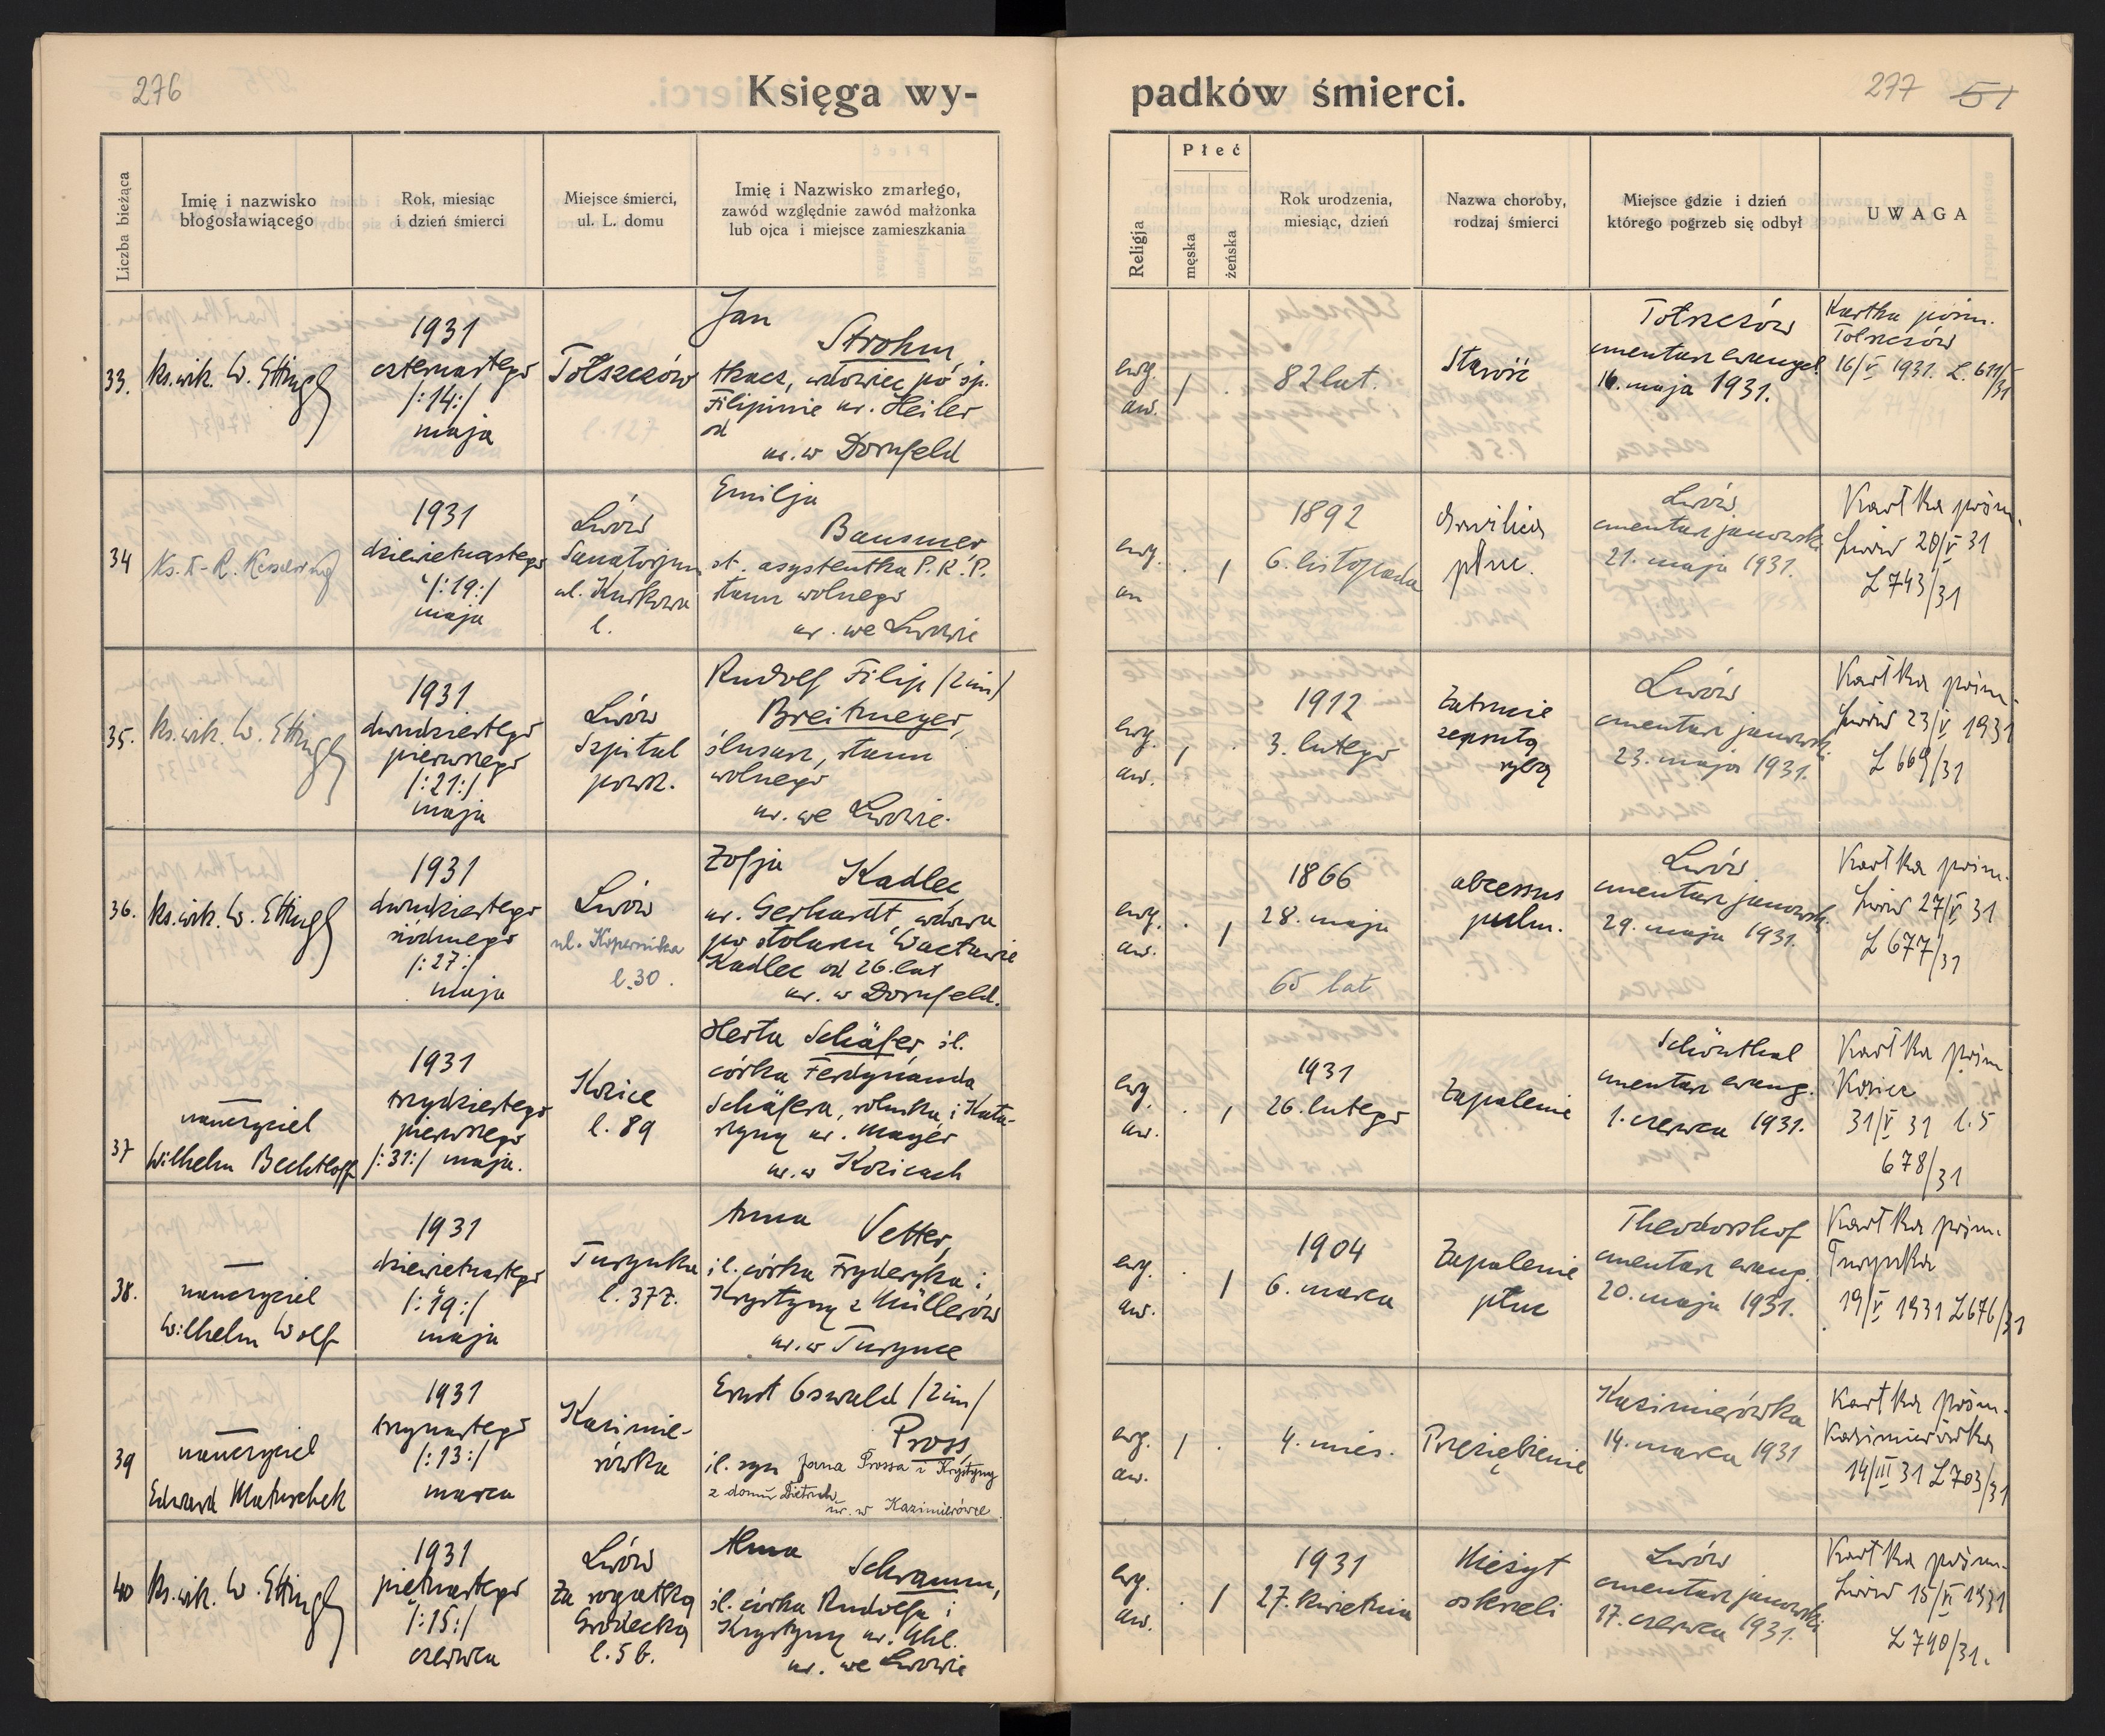 276
Księga wy-
padków śmierci.
277 51
Liczba bieżąca
Imię i nazwisko
błogosławiącego
Rok, miesiąc
i dzień śmierci
Miejsce śmierci,
ul. L. domu
Imię i Nazwisko zmarłego,
zawód względnie zawód małżonka
lub ojca i miejsce zamieszkania
Religja
Płeć
męska
żeńska
Rok urodzenia,
miesiąc, dzień
Nazwa choroby,
rodzaj śmierci
Miejsce gdzie i dzień
którego pogrzeb się odbył
UWAGA
33.
ks. wik. W. Ettinger
1931
czternastego
/:14:/
maja
Tołszczów
Jan
Strohm,
tkacz, wdowiec po śp.
Filipinie ur. Heiler
od
ur. w Dornfeld
ewg.
aw.
/ .
82 lat.
Starość
Tołszczów
cmentarz ewangel.
16. maja 1931.
Kartka pośm.
Tołszczów
16/V 1931. L. 611/31
34
Ks. T-R. Kesselring
1931
dziewiętnastego
/:19:/
maja
Lwów
Sanatorjum
ul. Kurkowa
l.
Emilja
Bausmer
st. asystentka P.K.P.
stanu wolnego
ur. we Lwowie
ewg.
aw
. /
1892
6. listopada
Gruźlica
płuc.
Lwów,
cmentarz janowski
21. maja 1931.
Kartka pośm.
Lwów 20/V 31
L 743/31
35.
ks. wik. W. Ettinger
1931
dwudziestego
pierwszego
/:21:/
maja
Lwów
Szpital
powsz.
Rudolf Filip /2 im/
Breitmeyer,
ślusarz, stanu
wolnego
ur. we Lwowie.
ewg.
aw.
/ .
1912
3. lutego
Zatrucie
zepsutą
rybą
Lwów
cmentarz janowski
23. maja 1931.
Kartka pośm.
Lwów 23/V 1931
L 669/31
36.
ks. wik. W. Ettinger
1931
dwudziestego
siódmego
/:27:/
maja
Lwów
ul. Kopernika
l. 30.
Zofja Kadlec
ur. Gerhardt wdowa
po stolarzu Wacławie
Kadlec od 26. lat
ur. w Dornfeld.
ewg.
aw.
. /
1866
28. maja
65 lat
abcessus
pulm.
Lwów
cmentarz janowski.
29. maja 1931.
Kartka pośm.
Lwów 27/V 31
L 677/31
37
nauczyciel
Wilhelm Bechtloff
1931
trzydziestego
pierwszego
/:31:/ maja.
Kozice
l. 89
Herta Schäfer, śl.
córka Ferdynanda
Schäfera, rolnika i Kata-
rzyny ur. Mayer
ur. w Kozicach
ewg.
aw.
. /
1931
26. lutego
Zapalenie
Schönthal
cmentarz ewang.
1. czerwca 1931.
Kartka pośm
Kozice
31/V 31 l. 5
678/31
38.
nauczyciel
Wilhelm Wolf
1931
dziewiętnastego
/:19:/
maja
Turynka
l. 377.
Anna Vetter,
śl. córka Fryderyka i
Krystyny z Müllerów
ur. w Turynce
ewg.
aw.
. /
1904
6. marca
Zapalenie
płuc
Theodorshof
cmentarz ewang.
20. maja 1931.
Kartka pośm.
Turynka
19/V 1931 L 676/31
39
nauczyciel
Edward Matuschek
1931
trzynastego
/:13:/
marca
Kazimie-
rówka
Ernst Oswald /2 im/
Pross,
śl. syn Jana Prossa i Krystyny
z domu Dietrich
ur. w Kazimierówce.
ewg.
aw.
/ .
4. mies.
Przeziębienie
Kazimierówka
14. marca 1931
Kartka pośm.
Kazimierówka
14/III 31 L 703/31
40
ks. wik. W. Ettinger
1931
piętnastego
/:15:/
czerwca
Lwów
Za rogatką
Gródecką
l. 5 b.
Alma
Schramm,
śl. córka Rudolfa i
Krystyny ur. Uhl.
ur. we Lwowie
ewg.
aw.
. /
1931
27. kwietnia
Nieżyt
oskrzeli
Lwów
cmentarz janowski
17. czerwca 1931.
Kartka pośm.
Lwów 15/VI 1931
L 790/31.